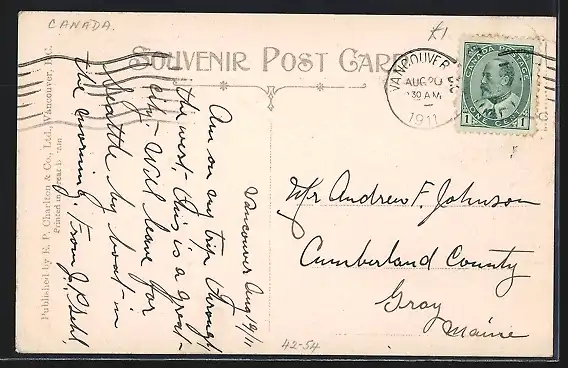 CANADA.
£1
SOUVENIR POST CARD
VANCOUVER
AUG 20
30 AM
1911
CANADA POSTAGE
1 ONE CENT 1
Vancouver Aug 19/11
Am on my trip through
the west. This is a great
city. Will leave for
Seattle by boat in
the morning. From J.
Mr Andrew F. Johnson
Cumberland County
Gray
Maine
Published by E. P. Charlton & Co., Ltd., Vancouver, B.C.
Printed in Great Britain
42-54